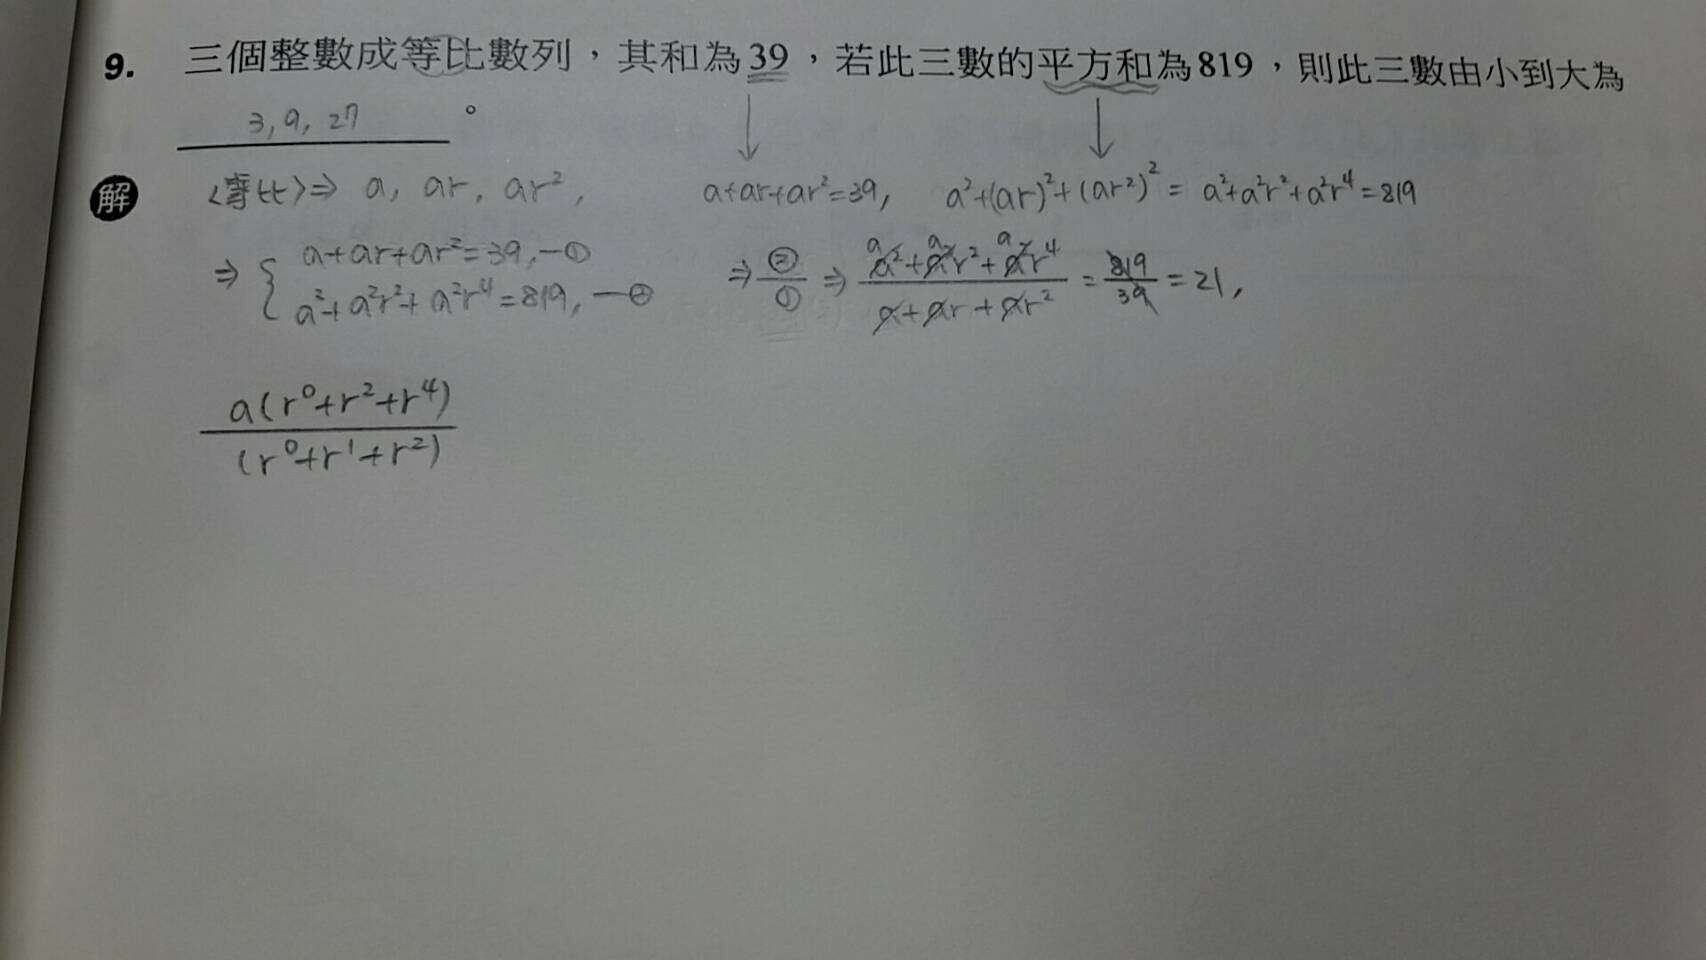 9. 三個整數成等比數列，其和為39，若此三數的平方和為819，則此三數由小到大為
3, 9, 27 。
解 <等比>⇒ a, ar, ar², a+ar+ar²=39, a²+(ar)²+(ar²)² = a²+a²r²+a²r⁴=819
⇒ { a+ar+ar²=39, —① ⇒ ②/① ⇒ (a²+a²r²+a²r⁴)/(a+ar+ar²) = 819/39 = 21,
a²+a²r²+a²r⁴=819, —②
a(r⁰+r²+r⁴)
(r⁰+r¹+r²)